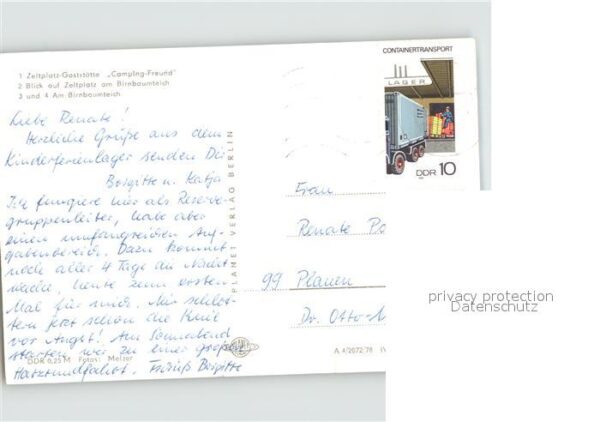 1 Zeltplatz-Gaststätte „Camping-Freund"
2 Blick auf Zeltplatz am Birnbaumteich
3 und 4 Am Birnbaumteich
Liebe Renate!
Herzliche Grüße aus dem
Kinderferienlager senden Dir
Birgitte u. Katja
Ich fungiere hier als Reserve-
gruppenleiter, habe aber
einen umfangreichen Auf-
gabenbereich. Dazu kommt
noch aller 4 Tage die Nacht
wache, heute zum ersten
Mal für mich. Mir schlot-
tern jetzt schon die Knie
vor Angst! Am Sonnabend
starten wir zu einer großen
Harzrundfahrt. Birgitte
DDR 0,25 M Fotos: Melzer
PLANET VERLAG BERLIN
A 4/2072/78 (V
CONTAINERTRANSPORT
LAGER
DDR 10
Frau
Renate Po
99 Plauen
Dr. Otto-
privacy protection
Datenschutz